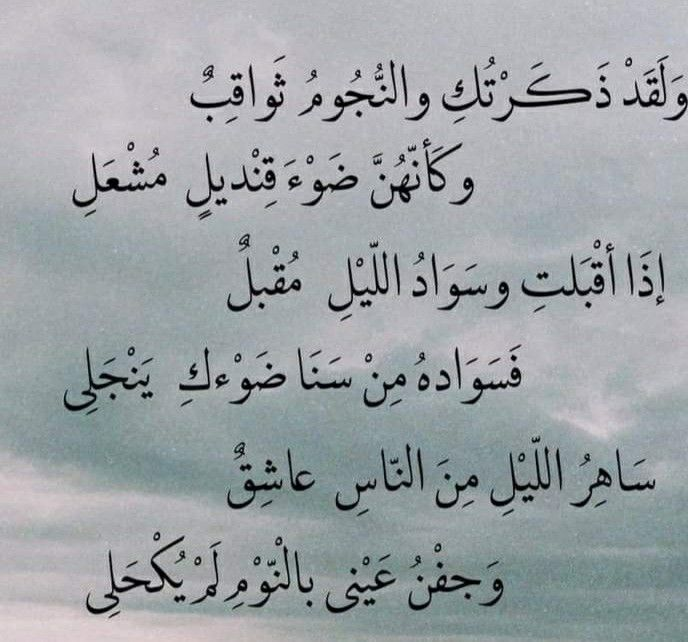 وَلَقَدْ ذَكَرْتُكِ والنُّجُومُ ثَواقِبٌ
وكَأنّهُنَّ ضَوْءَ قِنْديلٍ مُشْعَلِ
إذَا أقْبَلتِ وسَوَادُ اللّيْلِ مُقْبلٌ
فَسَوَادهُ مِنْ سَنَا ضَوْءكِ يَنْجَلِى
سَاهِرُ اللّيْلِ مِنَ النّاسِ عاشِقٌ
وَجفْنُ عَيْنى بالْنّوْمِ لَمْ يُكْحَلِى